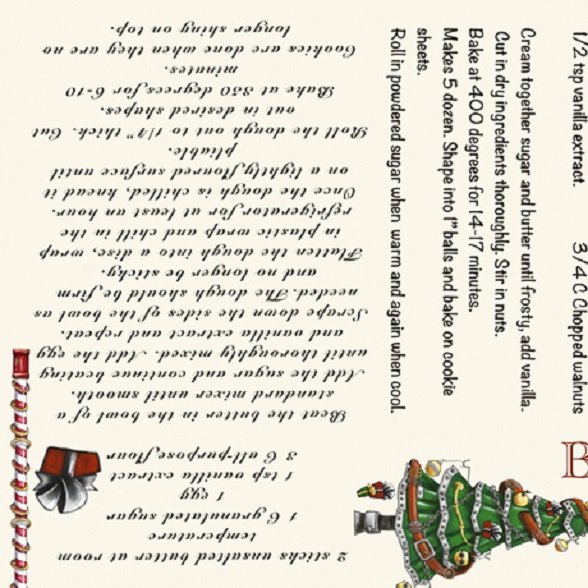 2 sticks unsalted butter at room
temperature
1 C granulated sugar
1 egg
1 tsp vanilla extract
3 C all-purpose flour
Beat the butter in the bowl of a
standard mixer until smooth.
Add the sugar and continue beating
until thoroughly mixed. Add the egg
and vanilla extract and repeat.
Scrape down the sides of the bowl as
needed. The dough should be firm
and no longer be sticky.
Flatten the dough into a disc, wrap
in plastic wrap and chill in the
refrigerator for at least an hour.
Once the dough is chilled, knead it
on a lightly floured surface until
pliable.
Roll the dough out to 1/4" thick. Cut
out in desired shapes.
Bake at 350 degrees for 6-10
minutes.
Cookies are done when they are no
longer shiny on top.
1/2 tsp vanilla extract. 3/4 C Chopped walnuts
Cream together sugar and butter until frosty, add vanilla.
Cut in dry ingredients thoroughly. Stir in nuts.
Bake at 400 degrees for 14-17 minutes.
Makes 5 dozen. Shape into 1" balls and bake on cookie
sheets.
Roll in powdered sugar when warm and again when cool.
B